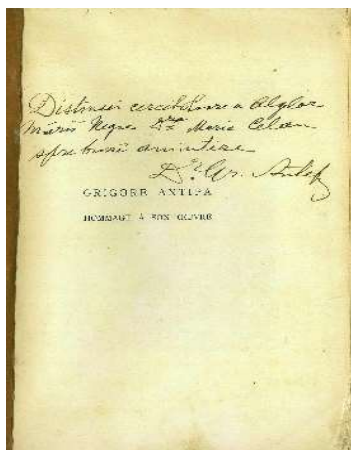 Distinsei cercetătoare a Algelor
Mării Negre D-ra Maria Celan
spre bună amintire
Dr. Gr. Antipa
GRIGORE ANTIPA
HOMMAGE À SON ŒUVRE